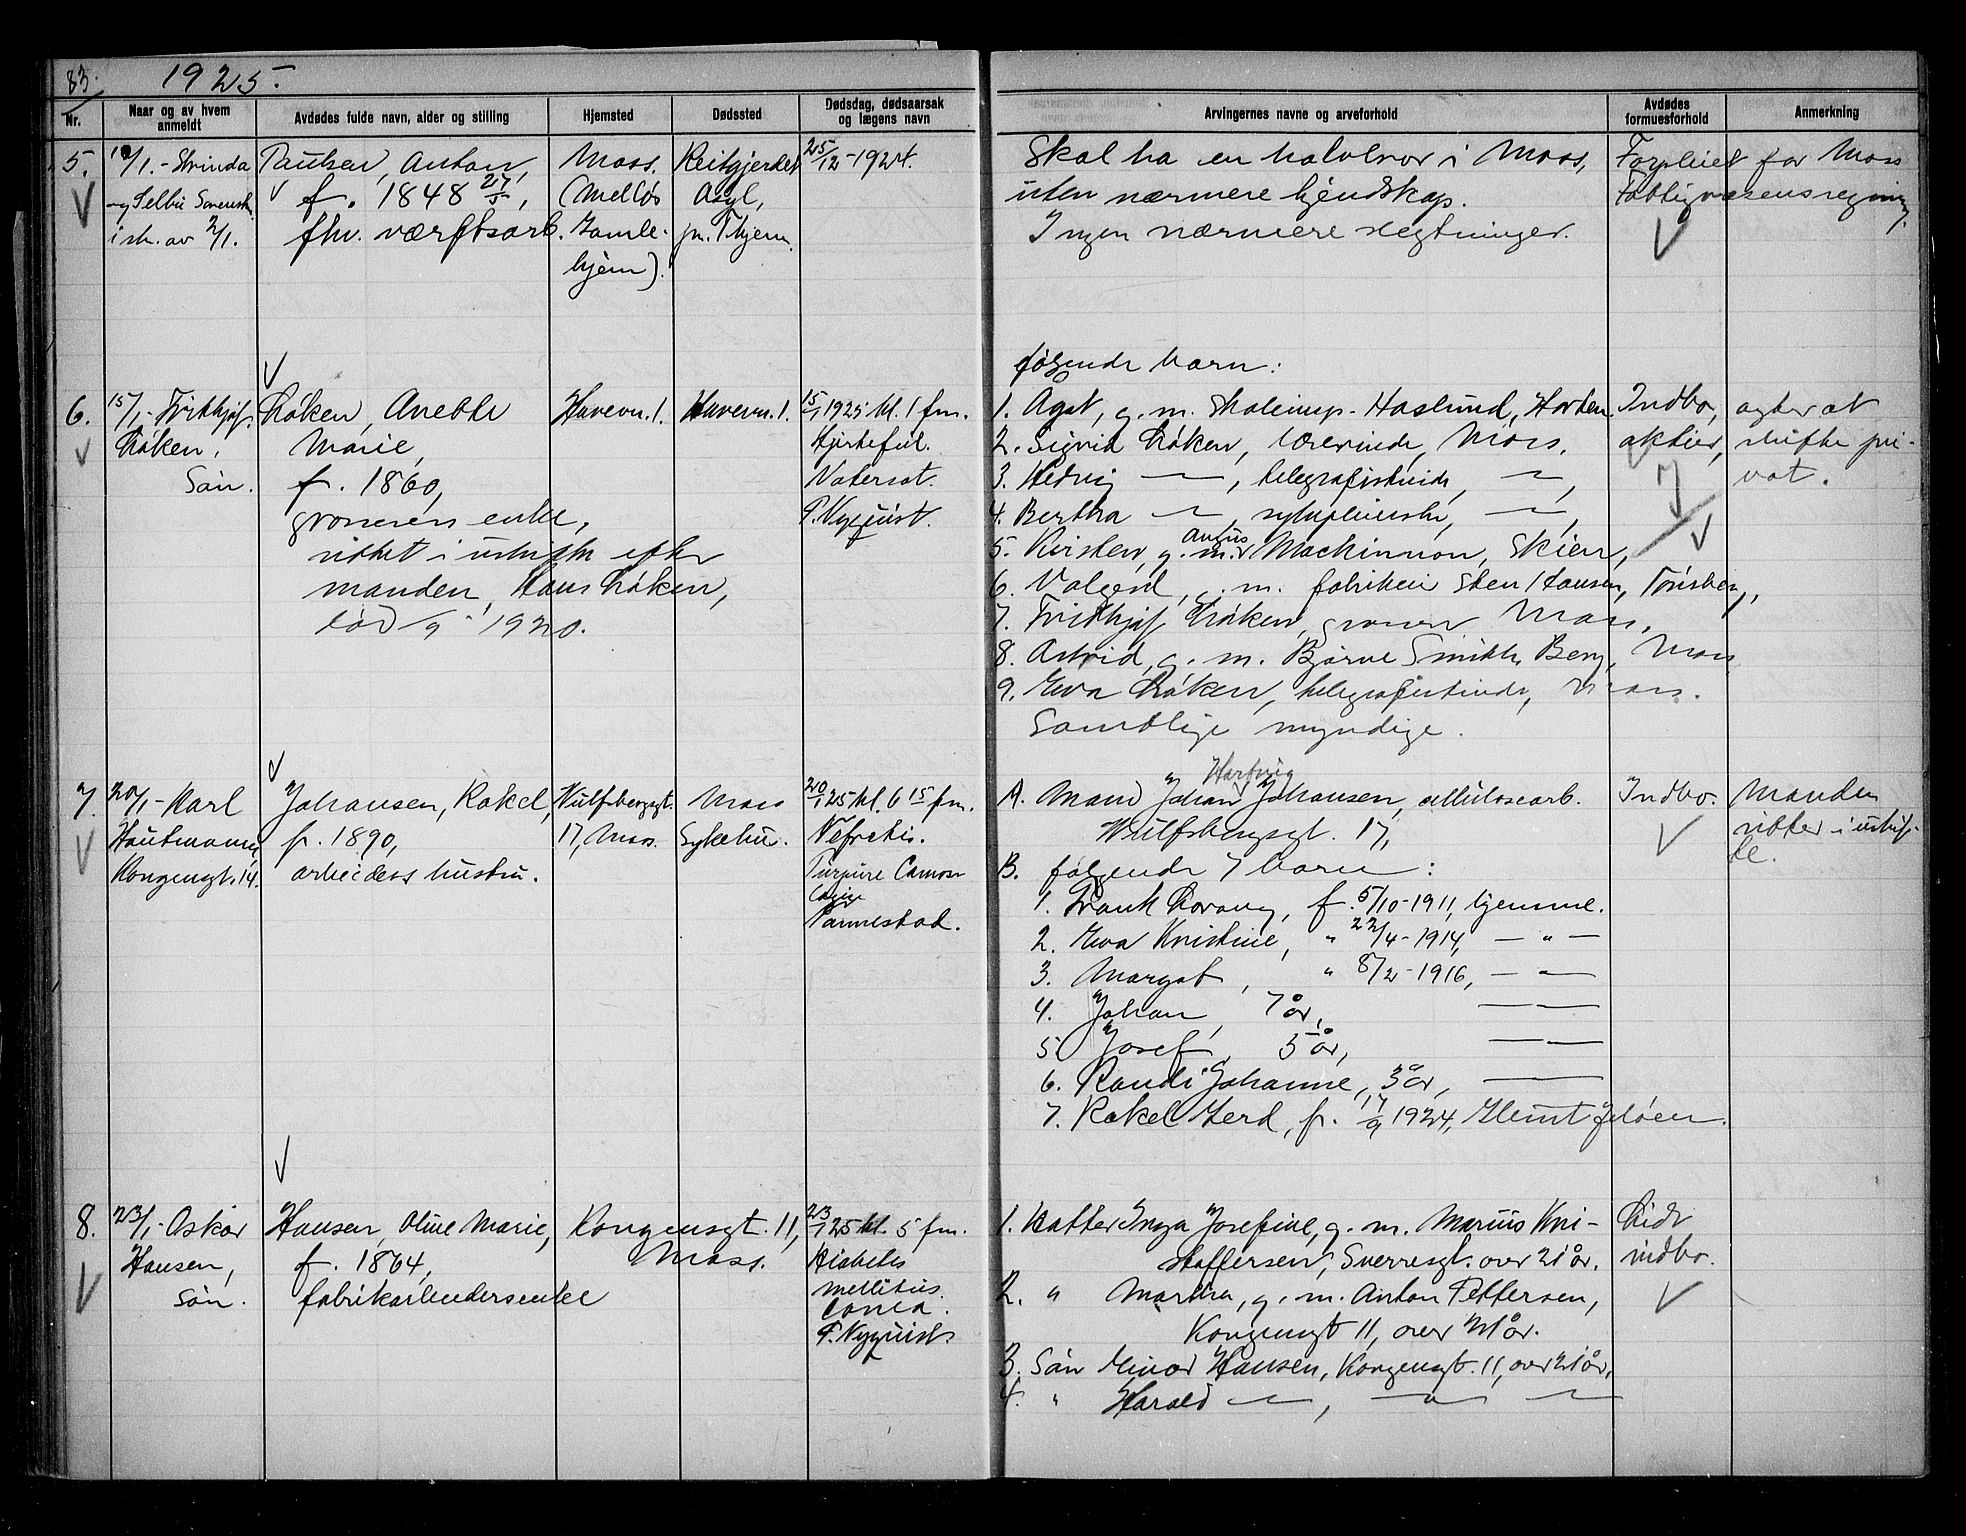 83.
1925.
Nr.
Naar og av hvem anmeldt
Avdødes fulde navn, alder og stilling
Hjemsted
Dødssted
Dødsdag, dødsaarsak og lægens navn
Arvingernes navne og arveforhold
Avdødes formuesforhold
Anmerkning
5.
10/1.- Strinda
og Selbu Sorensk.
i skr. av 2/1.
Paulsen, Anton,
f. 1848 27/5,
fhv. værftsarb.
Moss.
(Melløs
Gamle-
hjem).
Reitgjerdet
Asyl,
pr. Thjem.
25/12-1924.
Skal ha en halvbror i Moss,
uten nærmere kjendskap.
Ingen nærmere slegtninger.
Forpleiet for Moss
Fattigvæsens regning.
6.
15/1.- Fridthjof
Røken,
Søn.
Røken, Anette
Marie,
f. 1860,
grosserers enke,
sittet i uskifte efter
manden, Hans Røken,
død /9 1920.
Havevn. 1.
Havevn. 1.
15/1 1925 kl. 1 fm.
Hjertefeil.
Vatersot.
P. Nyquist.
følgende barn:
1. Agot, g. m. Haslund, Horten.
2. Sigrid Røken, lærerinde, Moss.
3. Hedvig — , telegrafistinde, — ,
4. Bertha — , sykepleierske, — ,
5. Kirsten, g. m. Angus Mackinnon, Skien,
6. Valgerd, g. m. fabrikeier Sten Hansen, Tønsberg,
7. Fridthjof Røken, grosserer Moss,
8. Astrid, g. m. Bjarne Smith, Berg, Moss
9. Eva Røken, telegrafistinde, Moss.
Samtlige myndige.
Indbo,
aktier,
agter at
skifte pri-
vat.
7.
20/1- Karl
Hautmann,
Kongensgt. 14.
Johansen, Rakel,
f. 1890,
arbeiders hustru.
Wulfsbergsgt.
17, Moss.
Moss
Sykehus.
20/1 25 kl. 6 15 fm.
Nefretis.
Parmestad.
A. Mand Johan Hartvig Johansen, cellulosearb.
Wulfsbergsgt. 17,
B. følgende 7 barn:
1. Frank Lorang, f. 5/10-1911, hjemme.
2. Eva Kristine, " 22/4-1914, — " —
3. Margot, " 8/2-1916, — —
4. Johan, 7 år, — —
5. Josef, 5 år, — —
6. Randi Johanne, 3 år, — —
7. Rakel Gerd, f. 17/9 1924, Jeløen.
Indbo.
Manden
sitter i uskif-
te.
8.
23/1- Oskar
Hansen,
Søn.
Hansen, Oline Marie,
f. 1864,
fabrikarbeidersenke
Kongensgt. 11,
Moss.
23/1 25 kl. 5 fm.
Diabetes
mellitus.
Coma.
P. Nyquist.
1. Datter Inga Josefine, g. m. Marius Kri-
stoffersen, Sverresgt. over 21 år.
2. " Martha, g. m. Anton Pettersen,
Kongensgt 11, over 21 år.
3. Søn Einar Hansen, Kongensgt. 11, over 21 år,
4. " Harald — , — " —
Lidt
indbo.